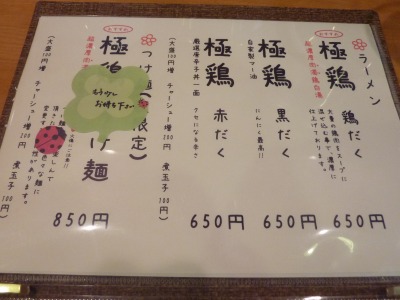 ラーメン
おすすめ
極鶏 鶏だく
650円
極鶏 黒だく
自家製マー油
にんにく最高!!
650円
極鶏 赤だく
厳選唐辛子丼一面
クセになる辛さ
650円
(大盛100円増 チャーシュー増200円 煮玉子100円)
つけ麺
限定)
おすすめ
極鶏
け麺
850円
もう少し
お待ち下さい
(大盛100円増 チャーシュー増200円 煮玉子100円)